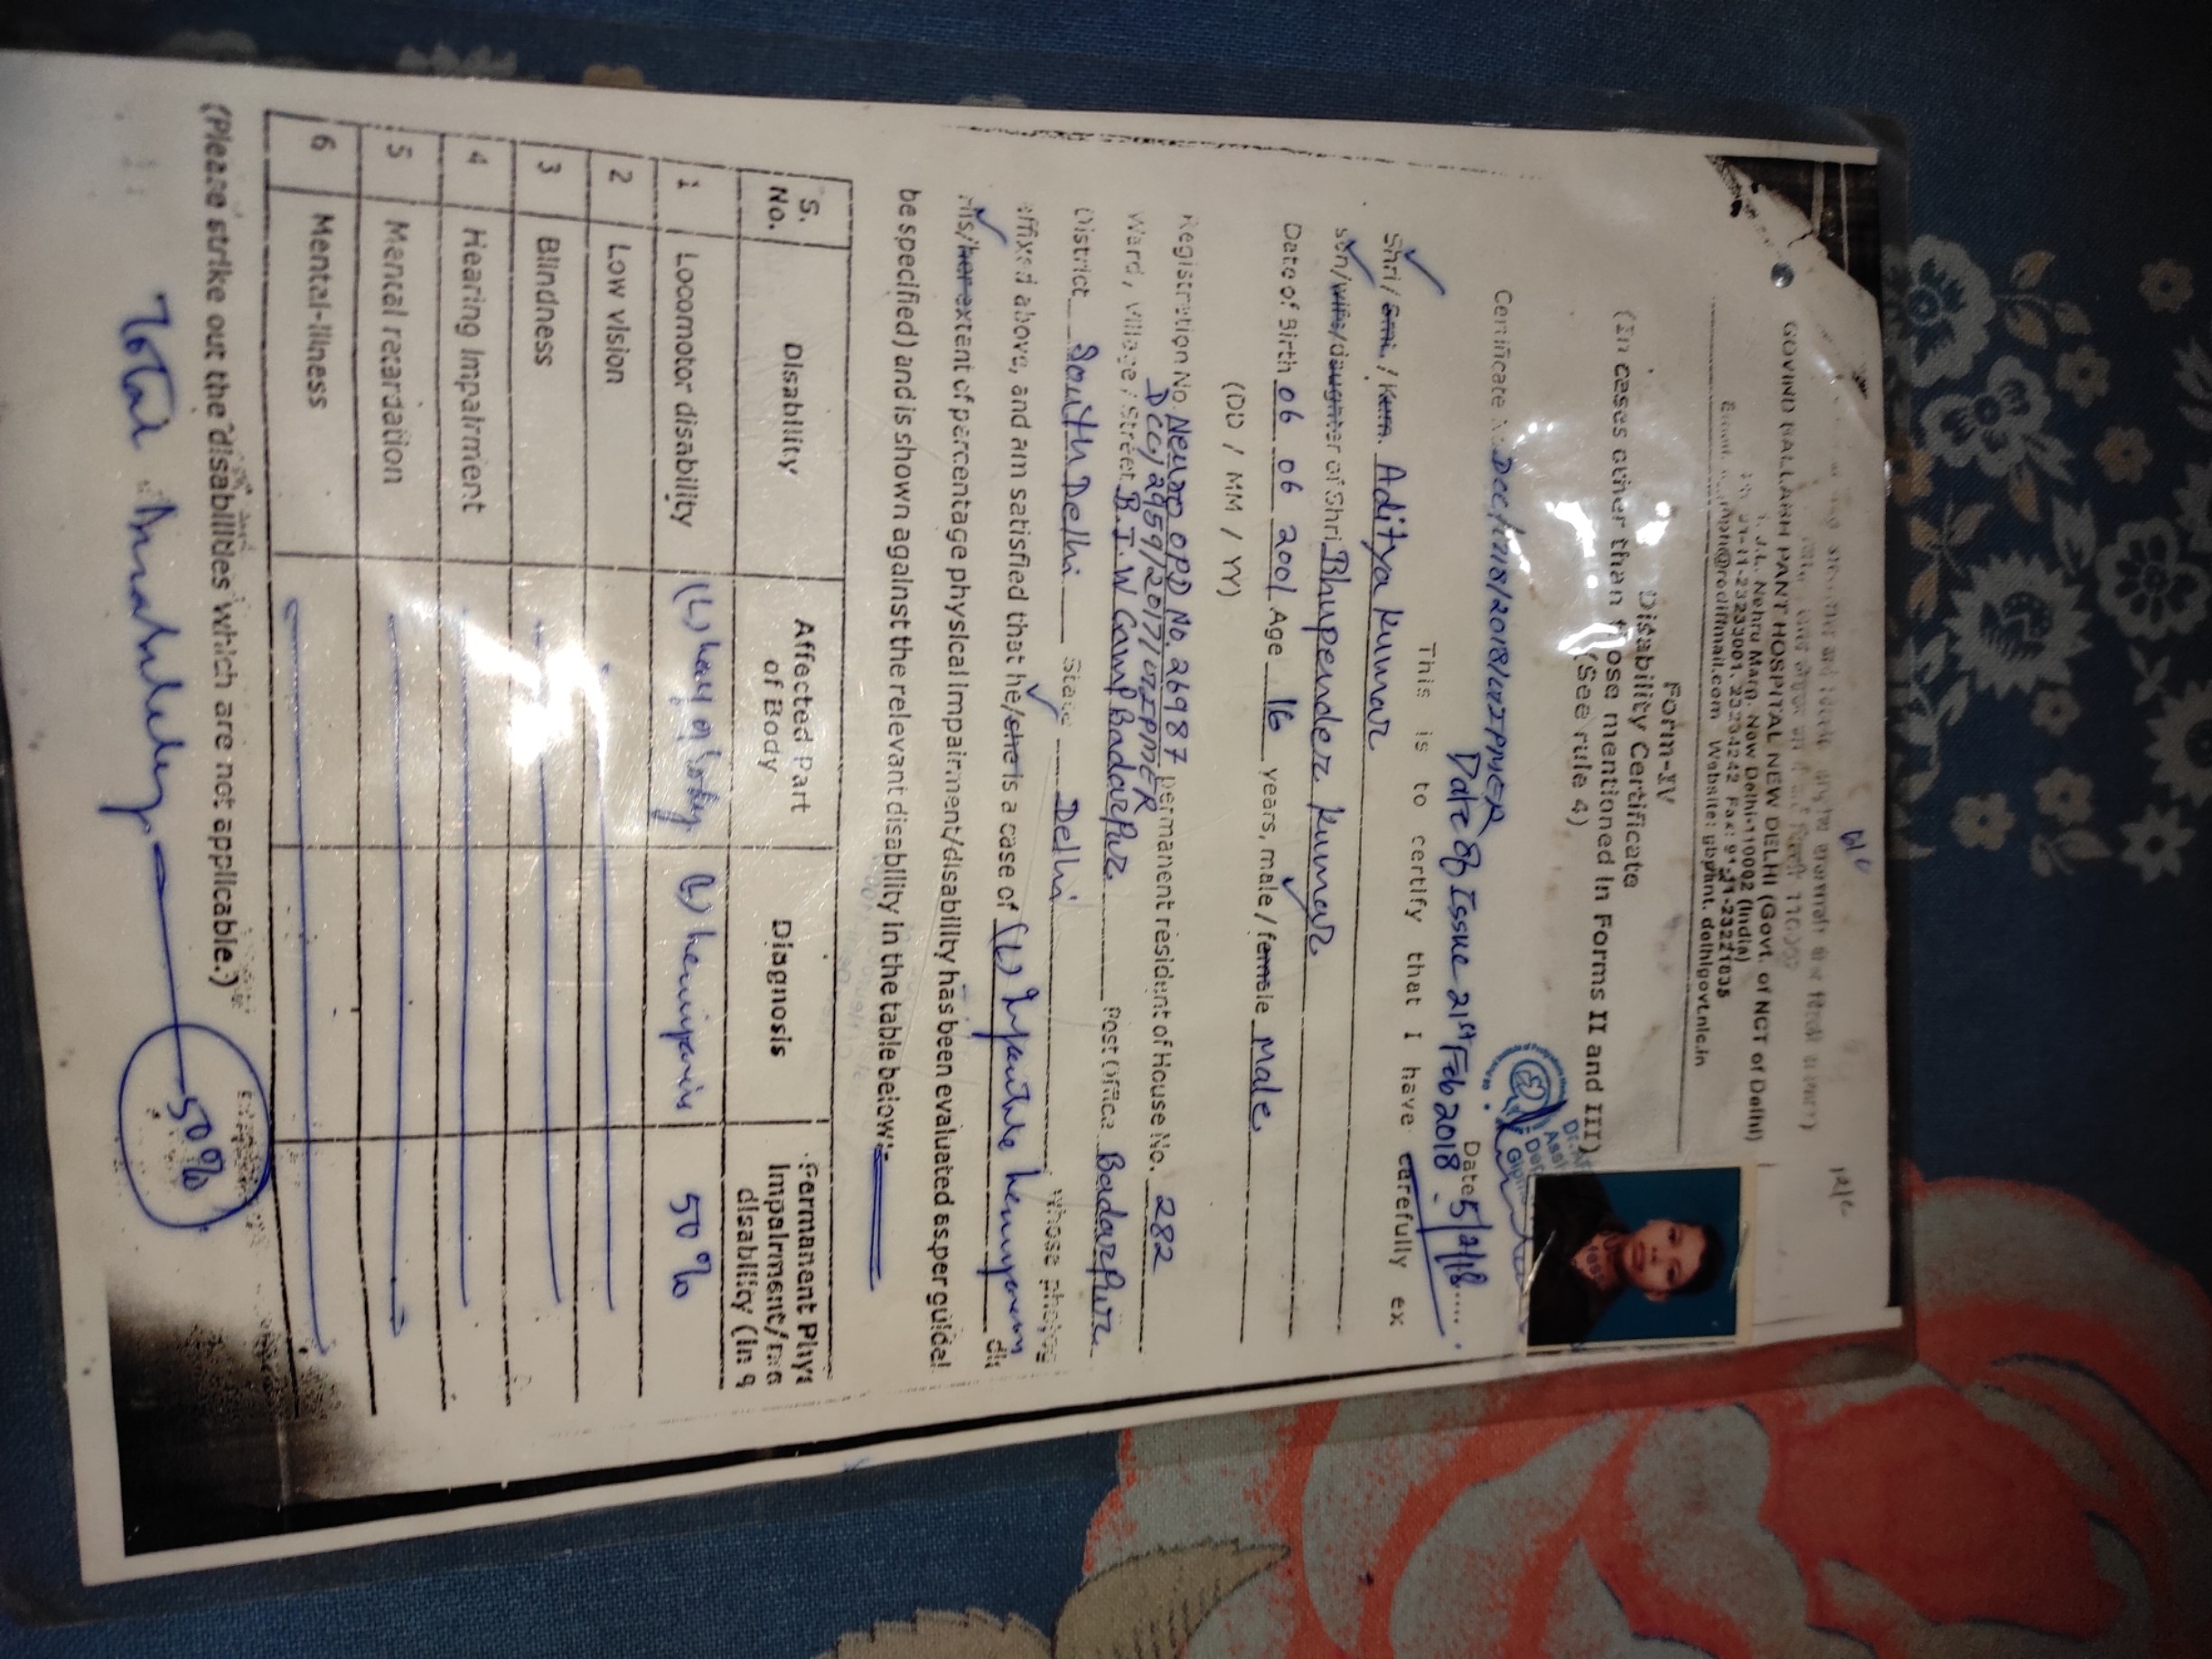 GOVIND BALLABH PANT HOSPITAL NEW DELHI (Govt. of NCT of Delhi)
J.L. Nehru Marg, New Delhi-110002 (India)
91-11-23233001, 23234242 Fax: 91-11-23221835
@rediffmail.com Website: gbpant.delhigovt.nic.in
Form-IV
Disability Certificate
(In cases other than those mentioned in Forms II and III)
(See rule 4)
Date 5/2/18
Certificate No. Dcc/1218/2018/
Date of Issue 21st Feb 2018
This is to certify that I have carefully ex
Shri / Smt. / Kum. Aditya kumar
son/wife/daughter of Shri Bhupender kumar
Date of Birth 06 06 2001 Age 16 years, male / female Male
(DD / MM / YY)
Registration No. Neuro OPD No. 26987 permanent resident of House No. 282
Dcc/2959/2017/
Ward / Village / Street B.I.W Camp BadarPur Post Office BadarPur
District South Delhi State Delhi whose photog
affixed above, and am satisfied that he/she is a case of (L)
his/her extent of percentage physical impairment/disability has been evaluated as per guidel
be specified) and is shown against the relevant disability in the table below:-
S. No. Disability Affected Part of Body Diagnosis Permanent Phys Impairment/ disability (In %
1 Locomotor disability (L) half of body (L) hemiparesis 50%
2 Low vision
3 Blindness
4 Hearing Impairment
5 Mental retardation
6 Mental-illness
(Please strike out the disabilities which are not applicable.)
Total 50%